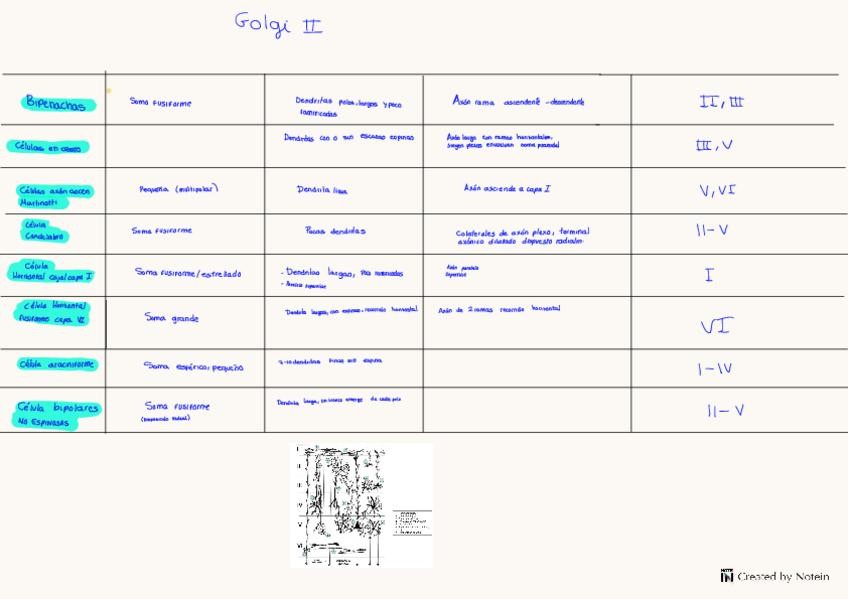 Golgi II
Bipenachas
Soma fusiforme
Dendritas polos, largos y poco
ramificadas
Axón rama ascendente - descendente
II, III
Células en
Dendritas con o sin escasas espinas
Axón largo con ramas horizontales,
III, V
Células axón ascen
Martinotti
Pequeña (multipolar)
Dendrita lisa
Axón asciende a capa I
V, VI
Célula
Candelabro
Soma fusiforme
Pocas dendritas
Colaterales de axón plexo, terminal
axónico dilatado dispuesto radialm.
II-V
Célula
Horizontal cajal capa I
Soma fusiforme/estrellado
- Dendritas largas, poco ramificadas
Axón paralelo
superficie
I
Célula Horizontal
fusiforme capa VI
Soma grande
Dendrita largas, con espinas, recorrido horizontal
Axón de 2 ramas recorrido horizontal
VI
Célula aracniforme
Soma esférico, pequeño
dendritas finas sin espina
I-IV
Célula bipolares
No Espinosas
Soma fusiforme
Dendrita larga, un tronco emerge de cada polo
II-V
I
II
III
IV
V
VI
NOTE
IN Created by Notein